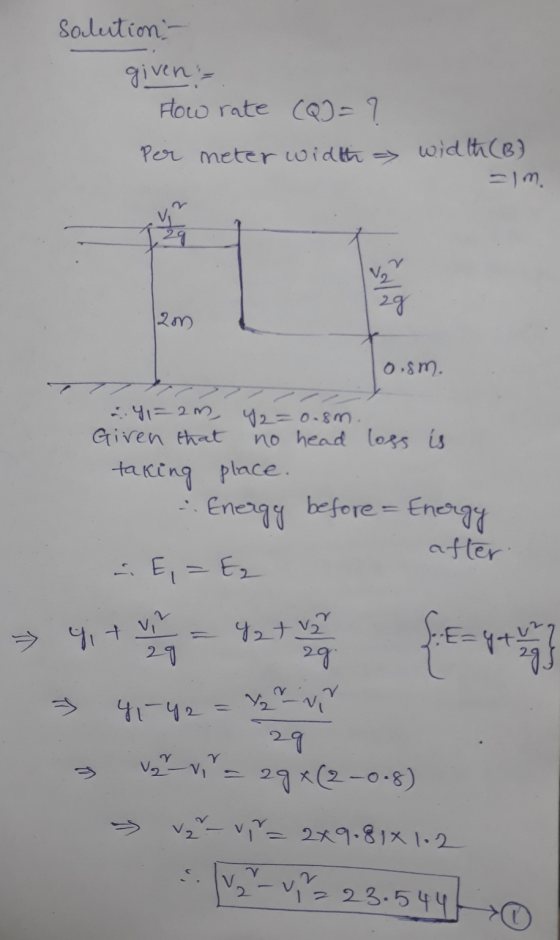 Solution:-
given:-
Flow rate (Q) = ?
Per meter width ⇒ width(B)
= 1m.
V₁²/2g
V₂²/2g
2m
0.8m.
∴ y₁ = 2m, y₂ = 0.8m.
Given that no head loss is
taking place.
∴ Energy before = Energy
after.
∴ E₁ = E₂
⇒ y₁ + V₁²/2g = y₂ + V₂²/2g. {∵ E = y + V²/2g}
⇒ y₁ - y₂ = V₂² - V₁²/2g
⇒ V₂² - V₁² = 2g × (2 - 0.8)
⇒ V₂² - V₁² = 2 × 9.81 × 1.2
∴ V₂² - V₁² = 23.544 → ①